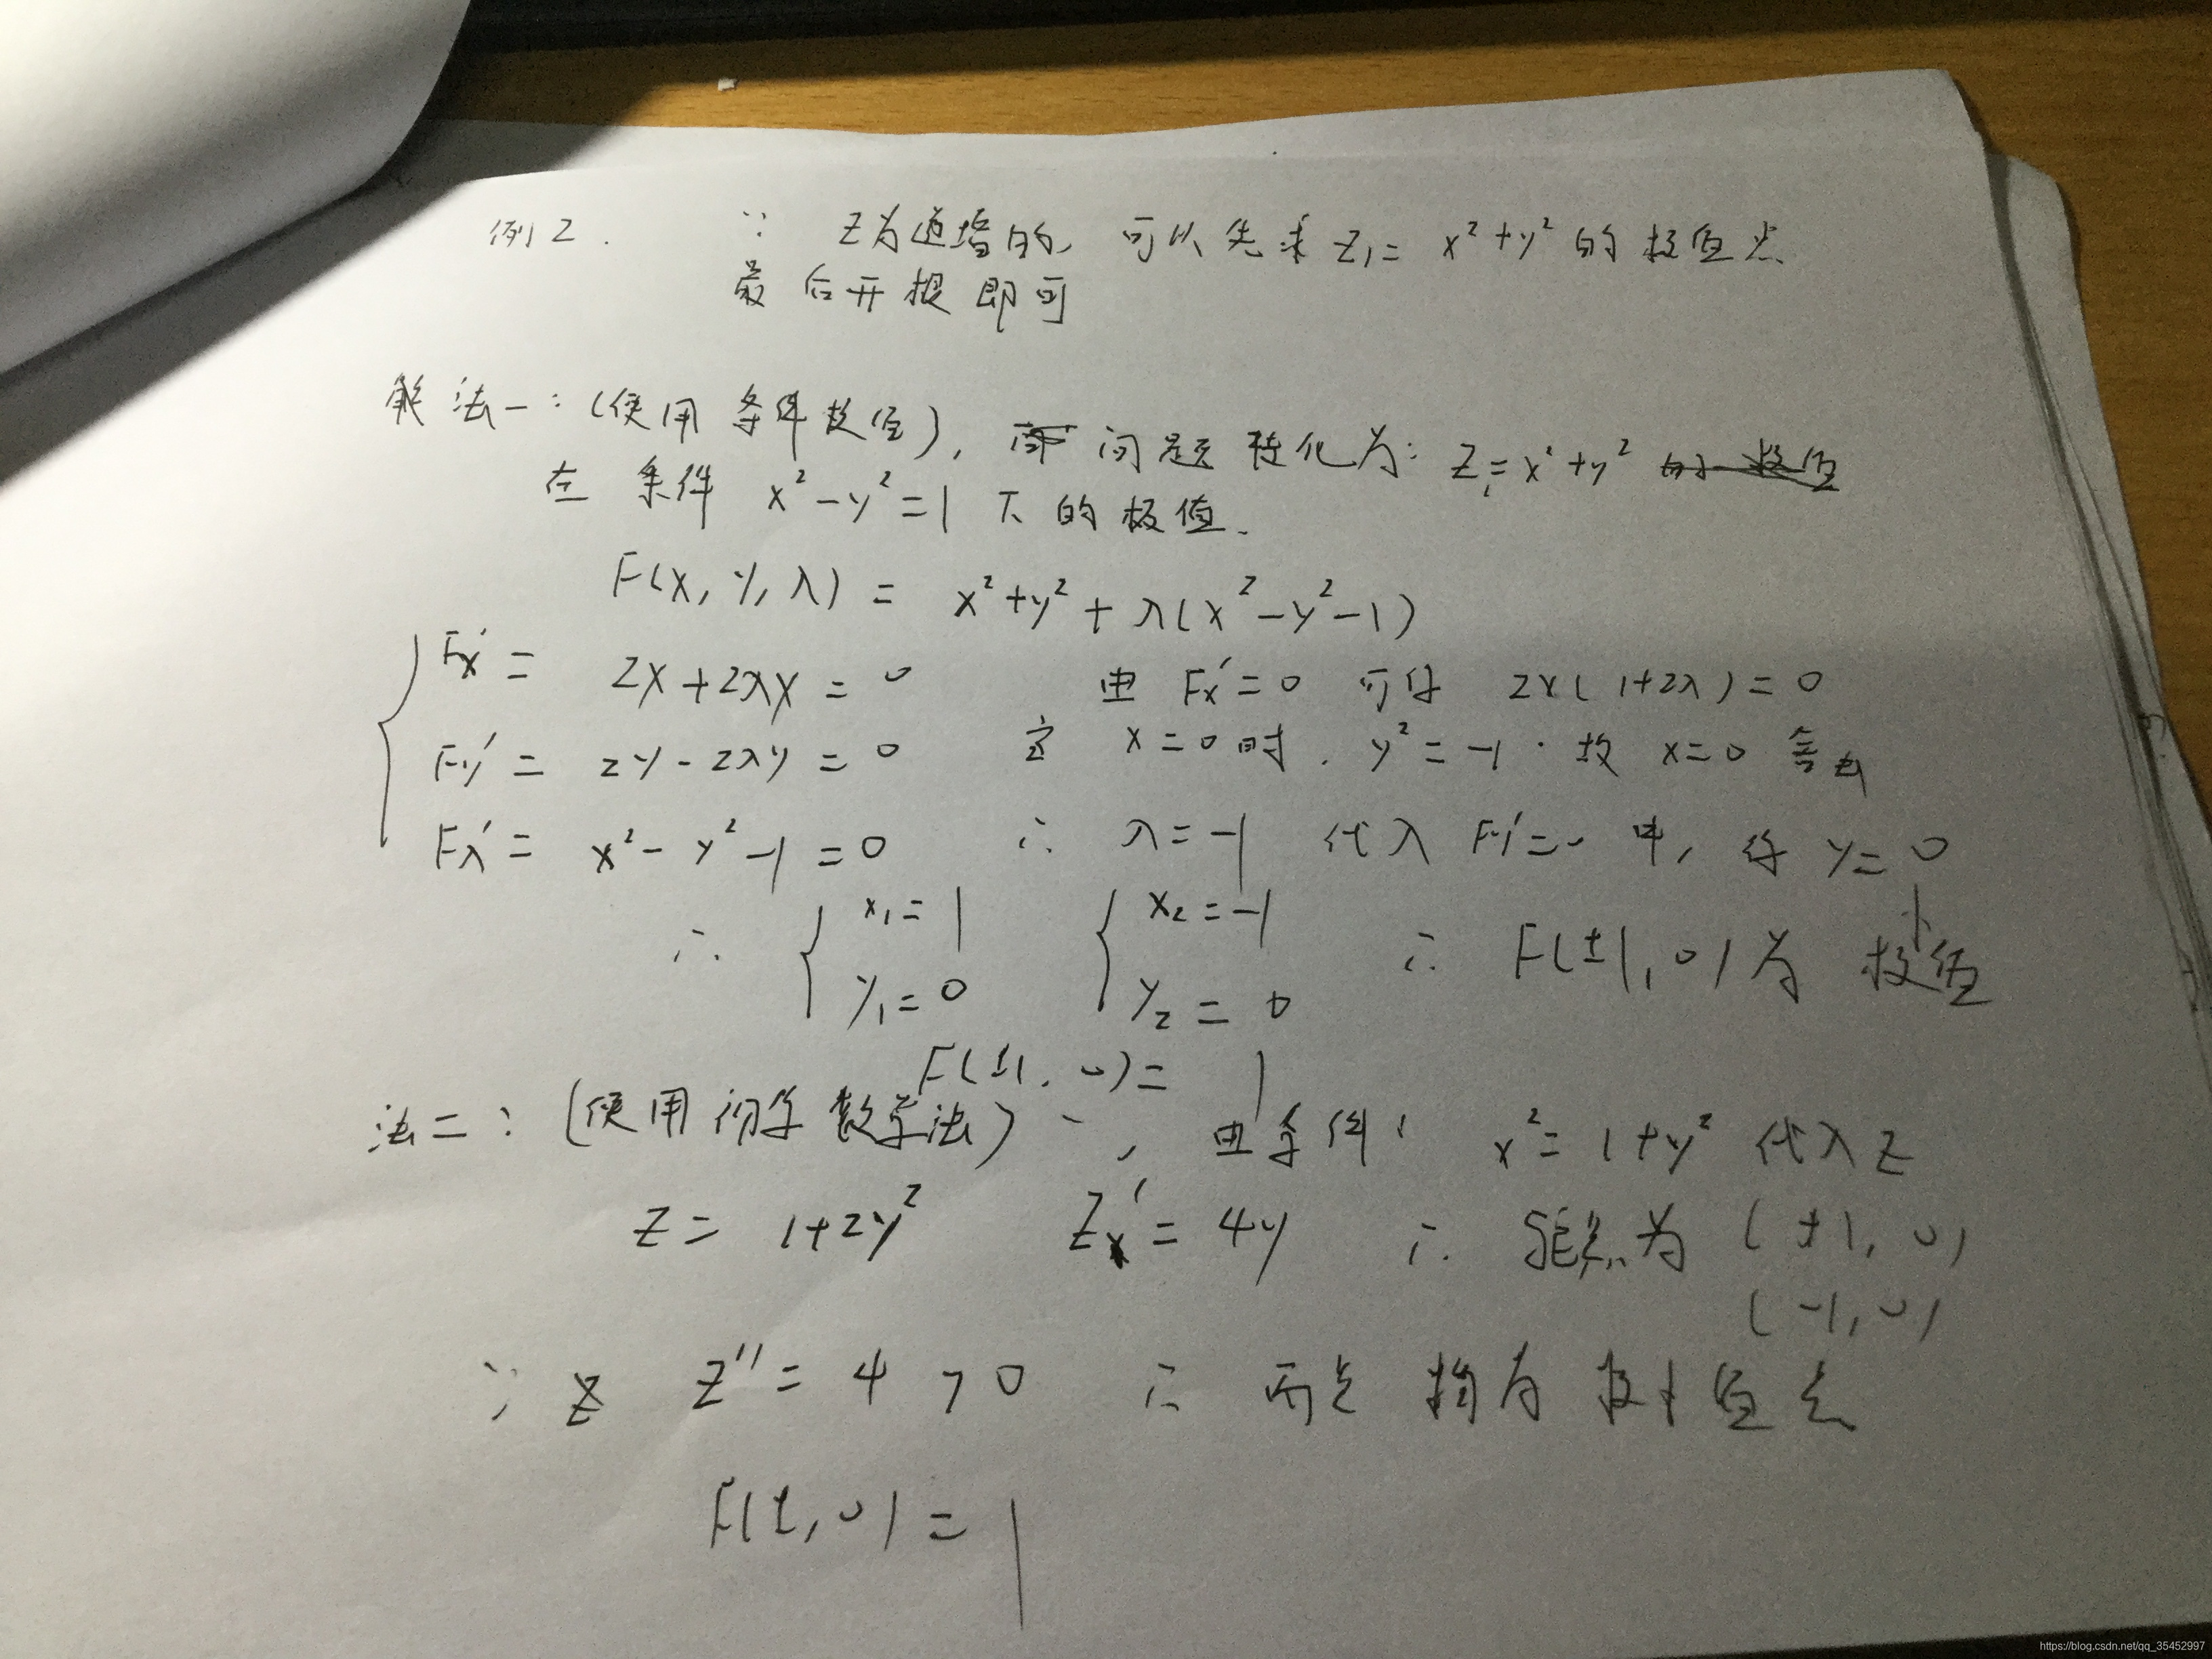 例2. ∵ Z为递增的, 可以先求 Z₁= x²+y² 的极值点
最后开根即可
解法一:(使用条件极值), 问题转化为: Z₁=x²+y² 的极值
在条件 x²-y²=1 下的极值.
F(x, y, λ) = x²+y²+λ(x²-y²-1)
Fx′= 2x+2λx = 0 由 Fx′=0 可得 2x(1+2λ)=0
Fy′= 2y-2λy = 0 当 x=0时, y²=-1. 故 x=0 舍去
Fλ′= x²-y²-1=0 ∴ λ=-1 代入 Fy′=0 中, 得 y=0
∴ { x₁=1 { x₂=-1 ∴ F(±1, 0) 为极小值
y₁=0 y₂=0
F(±1, 0)= 1
法二:(使用初等数学法), 由条件: x²=1+y² 代入Z
Z= 1+2y² Zx′= 4y ∴ 驻点为 (+1, 0)
(-1, 0)
∵ Z Z″= 4 >0 ∴ 两点均为极小值点
F(±, 0) = 1
https://blog.csdn.net/qq_35452997